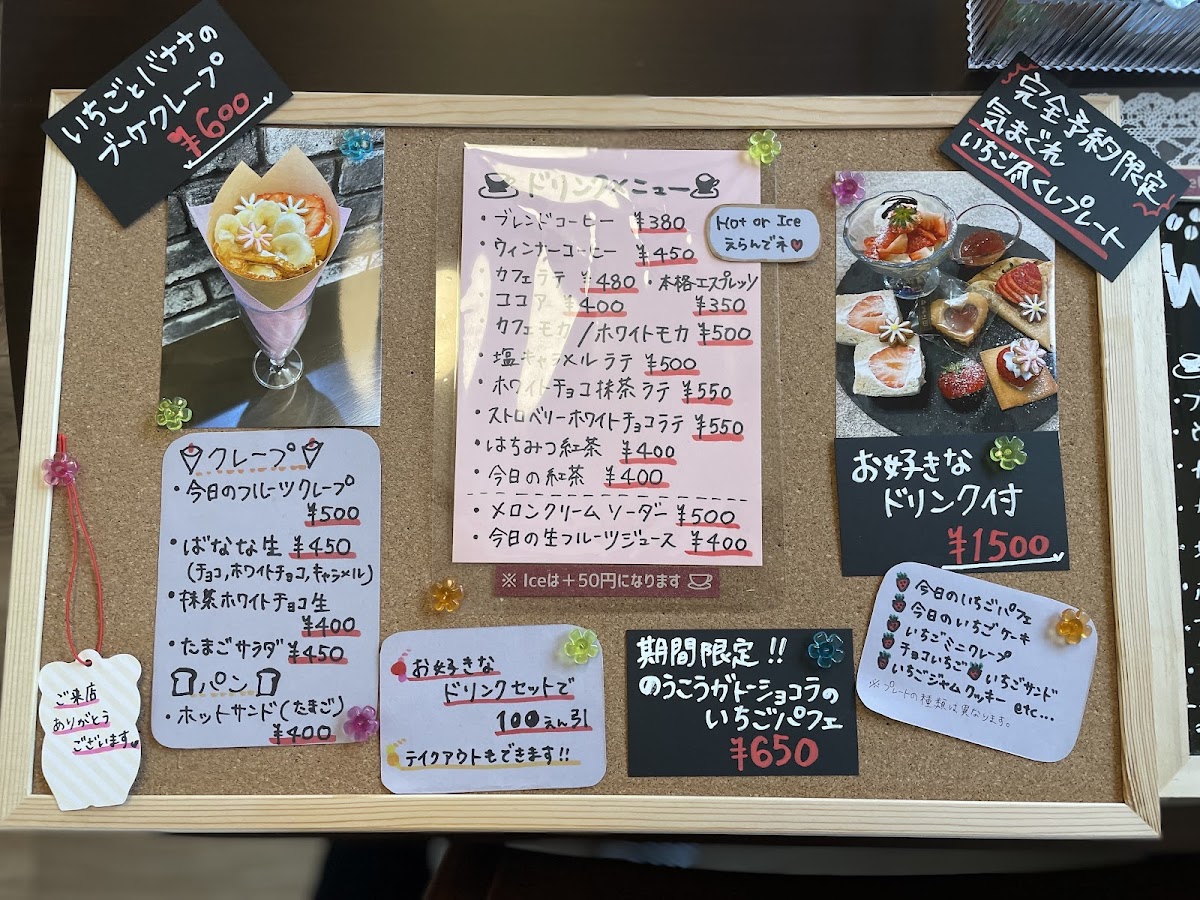 いちごとバナナの
ブーケクレープ
¥600
クレープ
・今日のフルーツクレープ
¥500
・ばなな生 ¥450
(チョコ,ホワイトチョコ,キャラメル)
・抹茶ホワイトチョコ生
¥400
・たまごサラダ ¥450
パン
・ホットサンド(たまご)
¥400
ご来店
ありがとう
ございます
ドリンクメニュー
・ブレンドコーヒー ¥380
・ウィンナーコーヒー ¥450
・カフェラテ ¥480 ・本格エスプレッソ
・ココア ¥400 ¥350
・カフェモカ/ホワイトモカ ¥500
・塩キャラメルラテ ¥500
・ホワイトチョコ抹茶ラテ ¥550
・ストロベリーホワイトチョコラテ ¥550
・はちみつ紅茶 ¥400
・今日の紅茶 ¥400
・メロンクリームソーダー ¥500
・今日の生フルーツジュース ¥400
※ Iceは+50円になります
Hot or Ice
えらんでネ
お好きな
ドリンクセットで
100えん引
テイクアウトもできます!!
期間限定!!
のうこうガトーショコラの
いちごパフェ
¥650
完全予約限定
気まぐれ
いちご尽くしプレート
お好きな
ドリンク付
¥1500
今日のいちごパフェ
今日のいちごケーキ
いちごミニクレープ
チョコいちご いちごサンド
いちごジャムクッキー etc...
※プレートの種類は異なります。
W